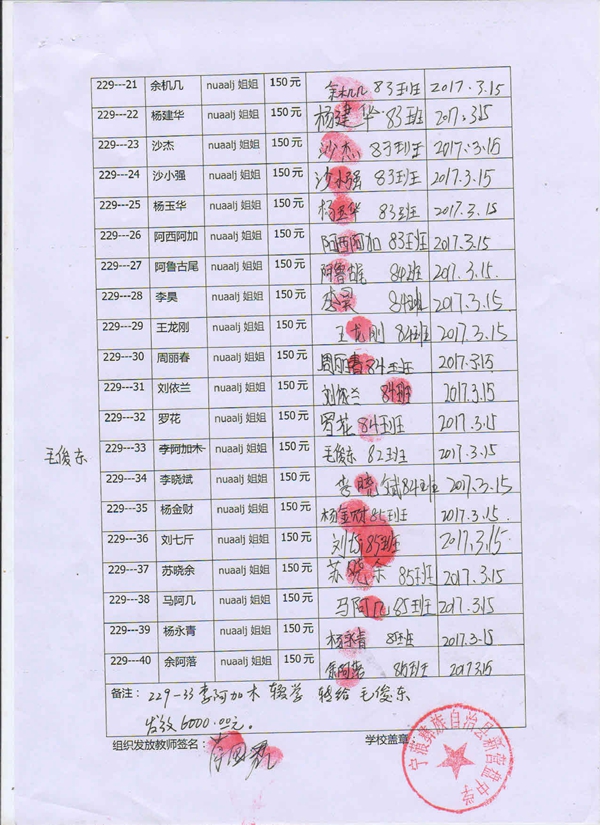 229---21 余机几 nuaalj 姐姐 150 元 余机几 83班 2017.3.15
229---22 杨建华 nuaalj 姐姐 150 元 杨建华 83班 2017.3.15
229---23 沙杰 nuaalj 姐姐 150 元 沙杰 83班 2017.3.15
229---24 沙小强 nuaalj 姐姐 150 元 沙小强 83班 2017.3.15
229---25 杨玉华 nuaalj 姐姐 150 元 杨玉华 83班 2017.3.15
229---26 阿西阿加 nuaalj 姐姐 150 元 阿西阿加 83班 2017.3.15
229---27 阿鲁古尾 nuaalj 姐姐 150 元 阿鲁古尾 84班 2017.3.15.
229---28 李昊 nuaalj 姐姐 150 元 李昊 84班 2017.3.15
229---29 王龙刚 nuaalj 姐姐 150 元 王龙刚 84班 2017.3.15
229---30 周丽春 nuaalj 姐姐 150 元 周丽春 84班 2017.3.15
229---31 刘依兰 nuaalj 姐姐 150 元 刘依兰 84班 2017.3.15
229---32 罗花 nuaalj 姐姐 150 元 罗花 84班 2017.3.15
毛俊东 229---33 李阿加木 nuaalj 姐姐 150 元 毛俊东 82班 2017.3.15
229---34 李晓斌 nuaalj 姐姐 150 元 李晓斌 84班 2017.3.15
229---35 杨金财 nuaalj 姐姐 150 元 杨金财 85班 2017.3.15.
229---36 刘七斤 nuaalj 姐姐 150 元 刘 85班 2017.3.15
229---37 苏晓余 nuaalj 姐姐 150 元 苏晓余 85班 2017.3.15
229---38 马阿几 nuaalj 姐姐 150 元 马阿几 85班 2017.3.15
229---39 杨永青 nuaalj 姐姐 150 元 杨永青 85班 2017.3.15
229---40 余阿落 nuaalj 姐姐 150 元 余阿落 85班 2017.3.15
备注： 229-33 李阿加木 辍学 转给 毛俊东
发放 6000.00元。
组织发放教师签名： 学校盖章：
宁蒗彝族自治县新营盘中学